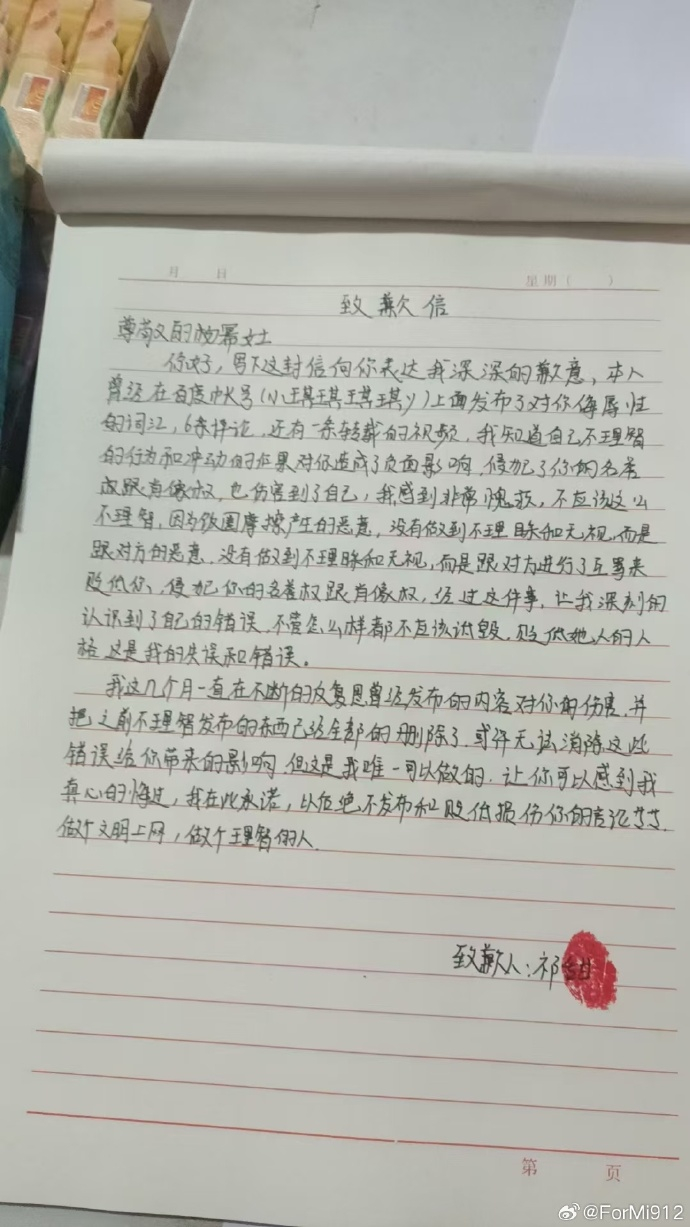 月 日 星期( )
致歉信
尊敬的杨幂女士
你好,写下这封信向你表达我深深的歉意,本人
曾经在百度帐号(小琪琪琪琪y)上面发布了对你侮辱性
的词汇,6条评论,还有一条转载的视频,我知道自己不理智
的行为和冲动的后果对你造成了负面影响,侵犯了你的名誉
权跟肖像权,也伤害到了自己,我感到非常愧疚,不应该这么
不理智,因为饭圈摩擦产生的恶意,没有做到不理睬和无视,而是
跟对方的恶意,没有做到不理睬和无视,而是跟对方进行了互骂来
贬低你,侵犯你的名誉权跟肖像权,经过这件事,让我深刻的
认识到了自己的错误,不管怎么样都不应该诋毁,贬低她人的人
格这是我的失误和错误。
我这几个月一直在不断的反复思曾经发布的内容对你的伤害,并
把之前不理智发布的东西已经全部的删除了,或许无法消除这些
错误给你带来的影响,但这是我唯一可以做的,让你可以感到我
真心的悔过,我在此承诺,以后绝不发布和贬低损伤你的言论
做个文明上网,做个理智的人.
致歉人:祁
第 页
@ForMi912